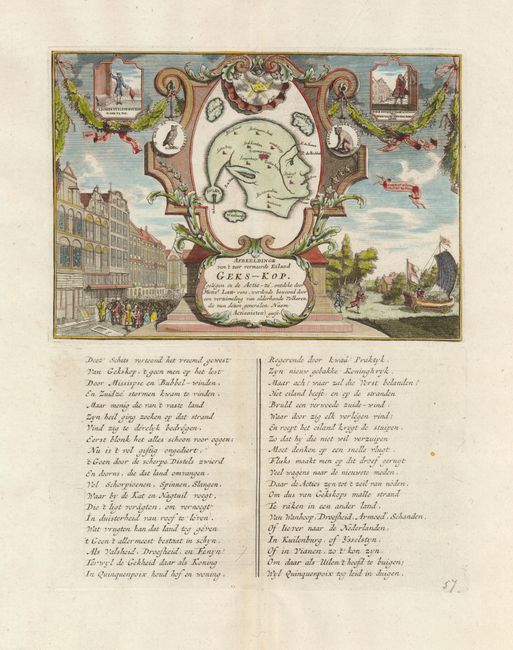 AFBEELDINGE
van't zeer vermaarde Eiland
GEKS-KOP.
gelegen in de Actie-zé, ontdekt door
Monsr. Law-rens, werdende bewoond door
een verzameling van alderhande Volkeren,
die men dezen generalen Naam
(Actionisten) geeft.
Deez' Schets vertoond het vreemd gewest
Van Gekskop, 't geen men op het lest
Door Missisipse en Bubbel-winden,
En Zuidzé stormen kwam te vinden,
Maar menig die van 't vaste land
Zyn heil ging zoeken op dat strand
Vind zig te dérelyk bedrógen.
Eerst blonk het alles schoon voor oogen;
Nu is 't vol giftig ongediert,
't Geen door de scherpe Distels zwierd
En doorns, die dat land omvangen.
Vol Schorpioenen, Spinnen, Slangen,
Waar by de Kat en Nagtuil voegt,
Die 't ligt veragten, om vernoegt
In duisterheid van roof te léven.
Wat vrugten kan dat land tog géven
't Geen 't allermeest bestaat in schyn,
Als Valsheid, Droefheid, en Fenyn?
Terwyl de Gekheid daar als Koning
In Quinquenpoix houd hof en woning,
Regerende door kwaâ Praktyk,
Zyn nieuw gebakke Koninghryk.
Maar ach! waar zal die Vorst belanden?
Het eiland beeft, en op de stranden
Bruld een verwoede zuide-wind,
Waar door zig elk verlégen vind;
En roept het eiland krygt de stuipen.
Zo dat hy die niet wil verzuipen
Moet denken op een snelle vlugt.
Fluks maakt men op dit droef gerugt
Veel wagens naar de nieuwste moden,
Daar de Acties zyn tot zeil van nóden,
Om dus van Gekskops malle strand
Te ráken in een ander land,
Van Wanhoop, Droefheid, Armoed, Schanden,
Of liever naar de Nederlanden,
In Kuilenburg, of Ysselstyn,
Of in Vianen, zo't kon zyn,
Om daar als Uilen 't hoofd te buigen;
Wyl Quinquenpoix tog leid in duigen.
57.